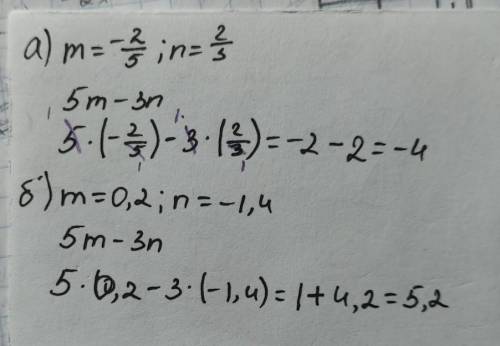 а) m = -2/5 ; n = 2/3
5m - 3n
5 · (-2/5) - 3 · (2/3) = -2 - 2 = -4
б) m = 0,2 ; n = -1,4
5m - 3n
5 · 0,2 - 3 · (-1,4) = 1 + 4,2 = 5,2